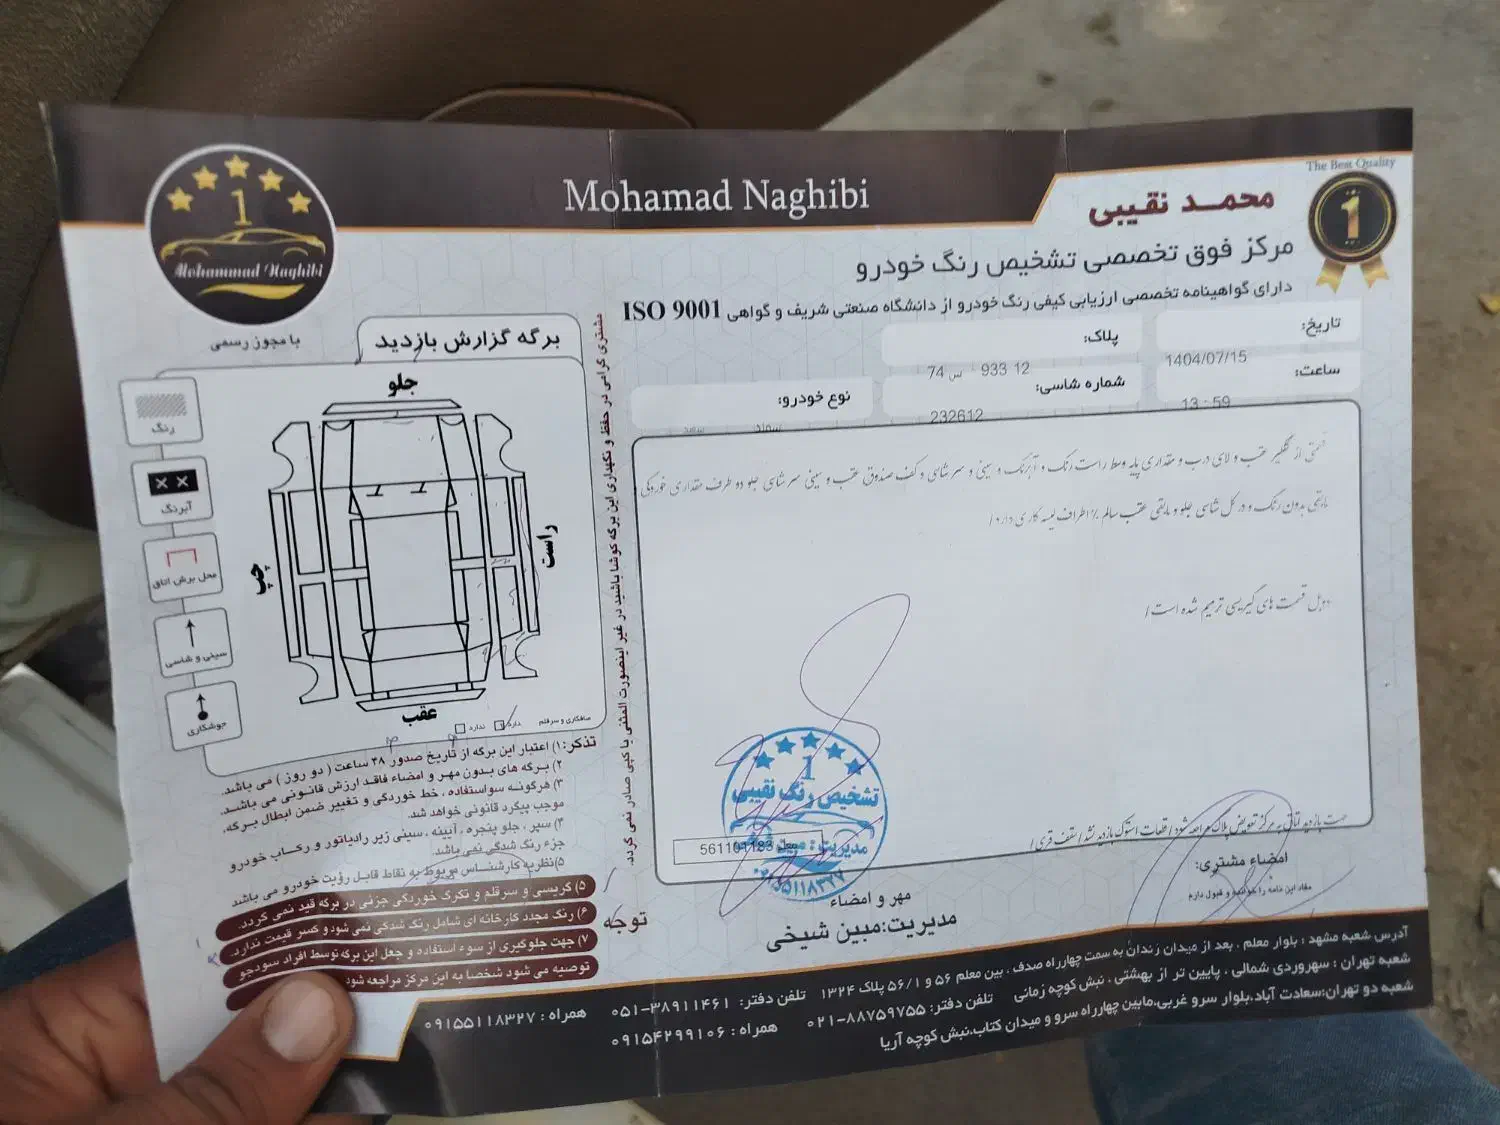 The Best Quality
1
Mohamad Naghibi
محمد نقیبی
1
Mohammad Naghibi
با مجوز رسمی
مرکز فوق تخصصی تشخیص رنگ خودرو
دارای گواهینامه تخصصی ارزیابی کیفی رنگ خودرو از دانشگاه صنعتی شریف و گواهی ISO 9001
تاریخ:
1404/07/15
پلاک:
12 933 س 74
ساعت:
13:59
شماره شاسی:
232612
نوع خودرو:
سمند سفید
از گلگیر عقب و لای درب و مقداری پایه وسط راست رنگ و آبرنگ و سینی و سر شاسی و کف صندوق عقب و سینی سر شاسی جلو دو طرف مقداری خوردگی
مابقی بدون رنگ و در کل شاسی جلو و مابقی عقب سالم / اطراف لیسه کاری دارد /
قسمت های گیریسی ترمیم شده است /
جهت بازدید اتاق به مرکز تعویض پلاک مراجعه شود / قطعات استوک بازدید نشد / سقف قری /
برگه گزارش بازدید
جلو
راست
چپ
عقب
صافکاری و سرقلم دارد ندارد
رنگ
آبرنگ
محل برش اتاق
سینی و شاسی
جوشکاری
مشتری گرامی در حفظ و نگهداری این برگه کوشا باشید در غیر اینصورت المثنی یا کپی صادر نمی گردد.
تذکر: ۱) اعتبار این برگه از تاریخ صدور ۴۸ ساعت ( دو روز ) می باشد.
۲) برگه های بدون مهر و امضاء فاقد ارزش قانونی می باشد.
۳) هرگونه سواستفاده ، خط خوردگی و تغییر ضمن ابطال برگه،
موجب پیگرد قانونی خواهد شد.
۴) سپر ، جلو پنجره ، آیینه ، سینی زیر رادیاتور و رکاب خودرو
جزء رنگ شدگی نمی باشد.
۵) نظریه کارشناس مربوط به نقاط قابل رؤیت خودرو می باشد
توجه
۵) گریسی و سرقلم و تکرگ خوردگی جزئی در برگه قید نمی گردد.
۶) رنگ مجدد کارخانه ای شامل رنگ شدگی نمی شود و کسر قیمت ندارد.
۷) جهت جلوگیری از سوء استفاده و جعل این برگه توسط افراد سودجو
توصیه می شود شخصا به این مرکز مراجعه شود
1
تشخیص رنگ نقیبی
مدیریت:
۰۹۱۵۵۱۱۸۳۲۷
561101183
مهر و امضاء
مدیریت: مبین شیخی
امضاء مشتری:
مفاد این نامه را خوانده و قبول دارم
آدرس شعبه مشهد : بلوار معلم ، بعد از میدان زندان به سمت چهارراه صدف ، بین معلم ۵۶ و ۵۶/۱ پلاک ۱۳۲۴ تلفن دفتر: ۰۵۱-۳۸۹۱۱۴۶۱ همراه : ۰۹۱۵۵۱۱۸۳۲۷
شعبه تهران : سهروردی شمالی ، پایین تر از بهشتی ، نبش کوچه زمانی تلفن دفتر: ۰۲۱-۸۸۷۵۹۷۵۵ همراه : ۰۹۱۵۴۲۹۹۱۰۶
شعبه دو تهران:سعادت آباد،بلوار سرو غربی،مابین چهارراه سرو و میدان کتاب،نبش کوچه آریا